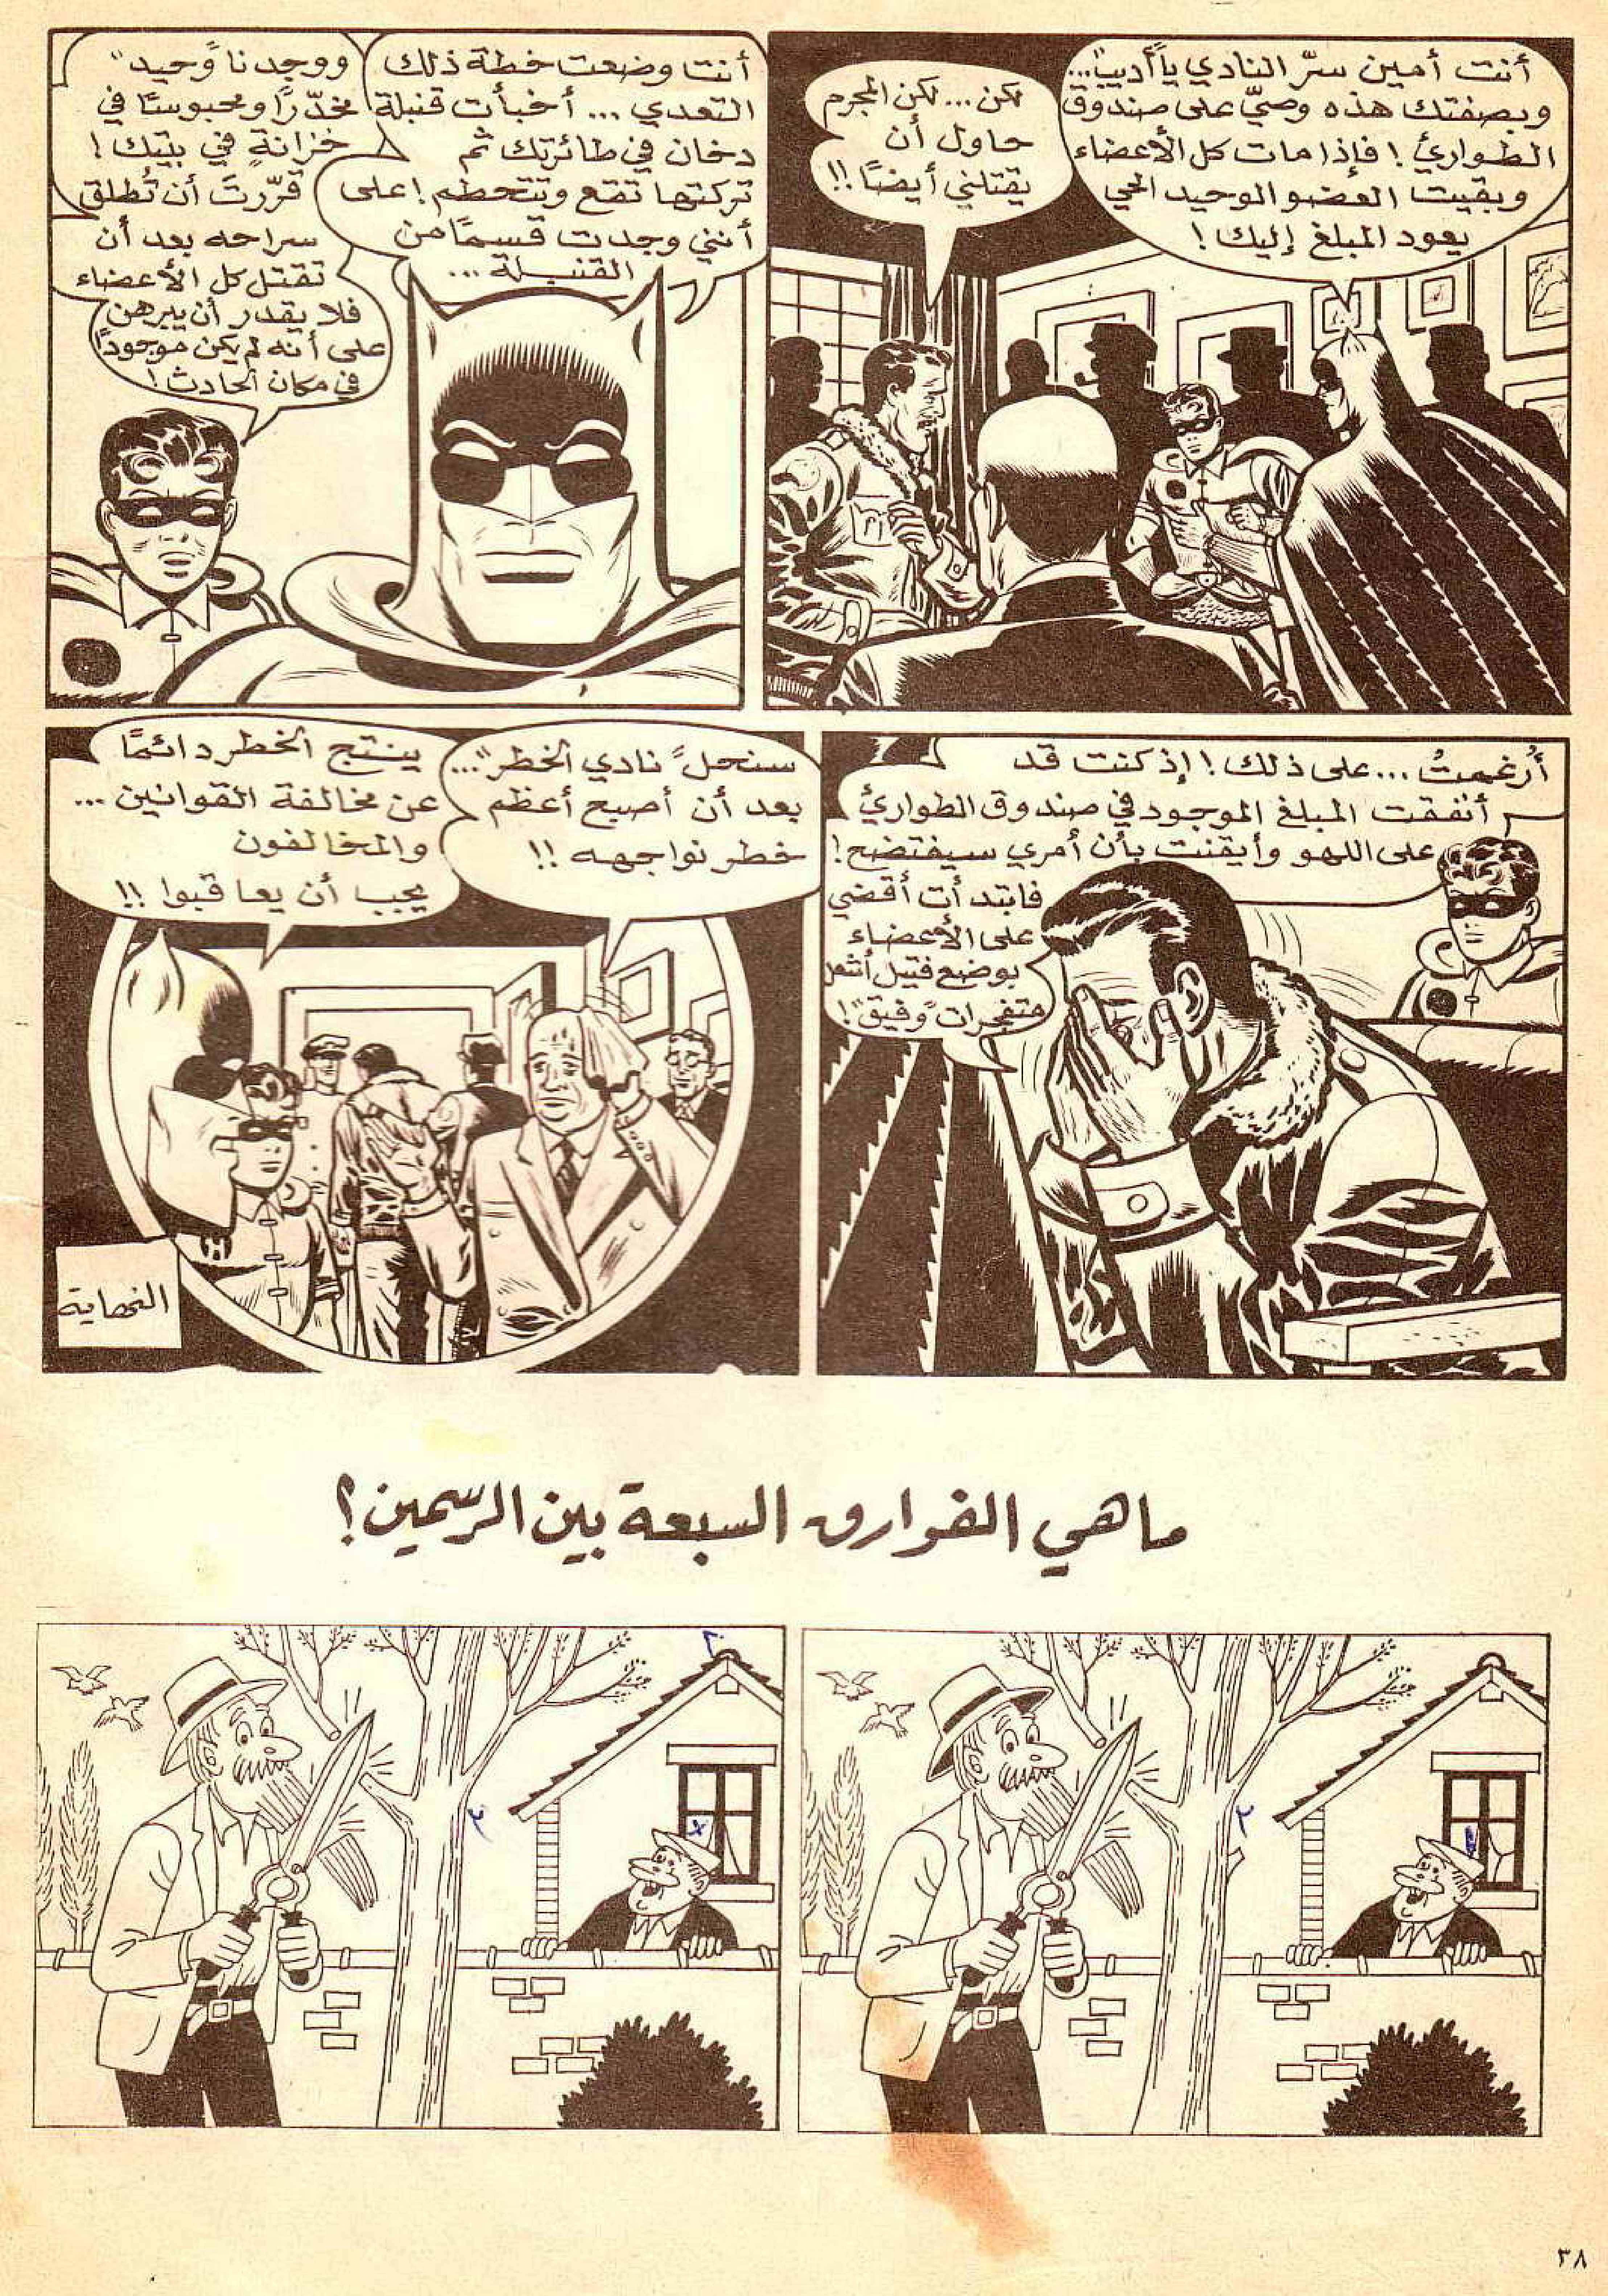 أنت أمين سرّ النادي يا "أديب"...
وبصفتك هذه وصيّ على صندوق
الطوارئ! فإذا مات كل الأعضاء
وبقيت العضو الوحيد الحي
يعود المبلغ إليك!
لكن... لكن المجرم
حاول أن
يقتلني أيضًا!!
أنت وضعت خطة ذلك
التعدي... أخبأت قنبلة
دخان في طائرتك ثم
تركتها تقع وتتحطم! على
أنني وجدت قسمًا من
القنبلة...
ووجدنا "وحيد"
مخدّرًا ومحبوسًا في
خزانةٍ في بيتك!
قرّرتَ أن تُطلق
سراحه بعد أن
تقتل كل الأعضاء
فلا يقدر أن يبرهن
على أنه لم يكن موجودًا
في مكان الحادث!
أُرغمتُ... على ذلك! إذ كنت قد
أنفقت المبلغ الموجود في صندوق الطوارئ
على اللهو وأيقنت بأن أمري سيفتضح!
فابتدأت أقضي
على الأعضاء
بوضع فتيل أشعل
متفجرات "وفيق"!
سنحل "نادي الخطر"...
بعد أن أصبح أعظم
خطر نواجهه!!
ينتج الخطر دائمًا
عن مخالفة القوانين...
والمخالفون
يجب أن يعاقبوا!!
النهاية
ما هي الفوارق السبعة بين الرسمين؟
٣٨